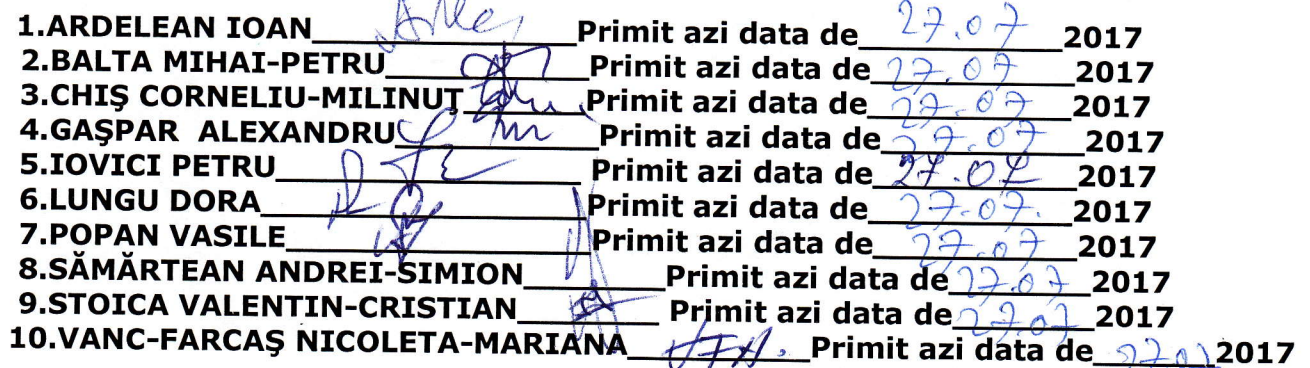 1.ARDELEAN IOAN Primit azi data de 27.07 2017
2.BALTA MIHAI-PETRU Primit azi data de 27.07 2017
3.CHIŞ CORNELIU-MILINUŢ Primit azi data de 27.07 2017
4.GAŞPAR ALEXANDRU Primit azi data de 27.07 2017
5.IOVICI PETRU Primit azi data de 27.07 2017
6.LUNGU DORA Primit azi data de 27.07. 2017
7.POPAN VASILE Primit azi data de 27.07 2017
8.SĂMĂRTEAN ANDREI-SIMION Primit azi data de 27.07 2017
9.STOICA VALENTIN-CRISTIAN Primit azi data de 27.07 2017
10.VANC-FARCAŞ NICOLETA-MARIANA Primit azi data de 27.07 2017